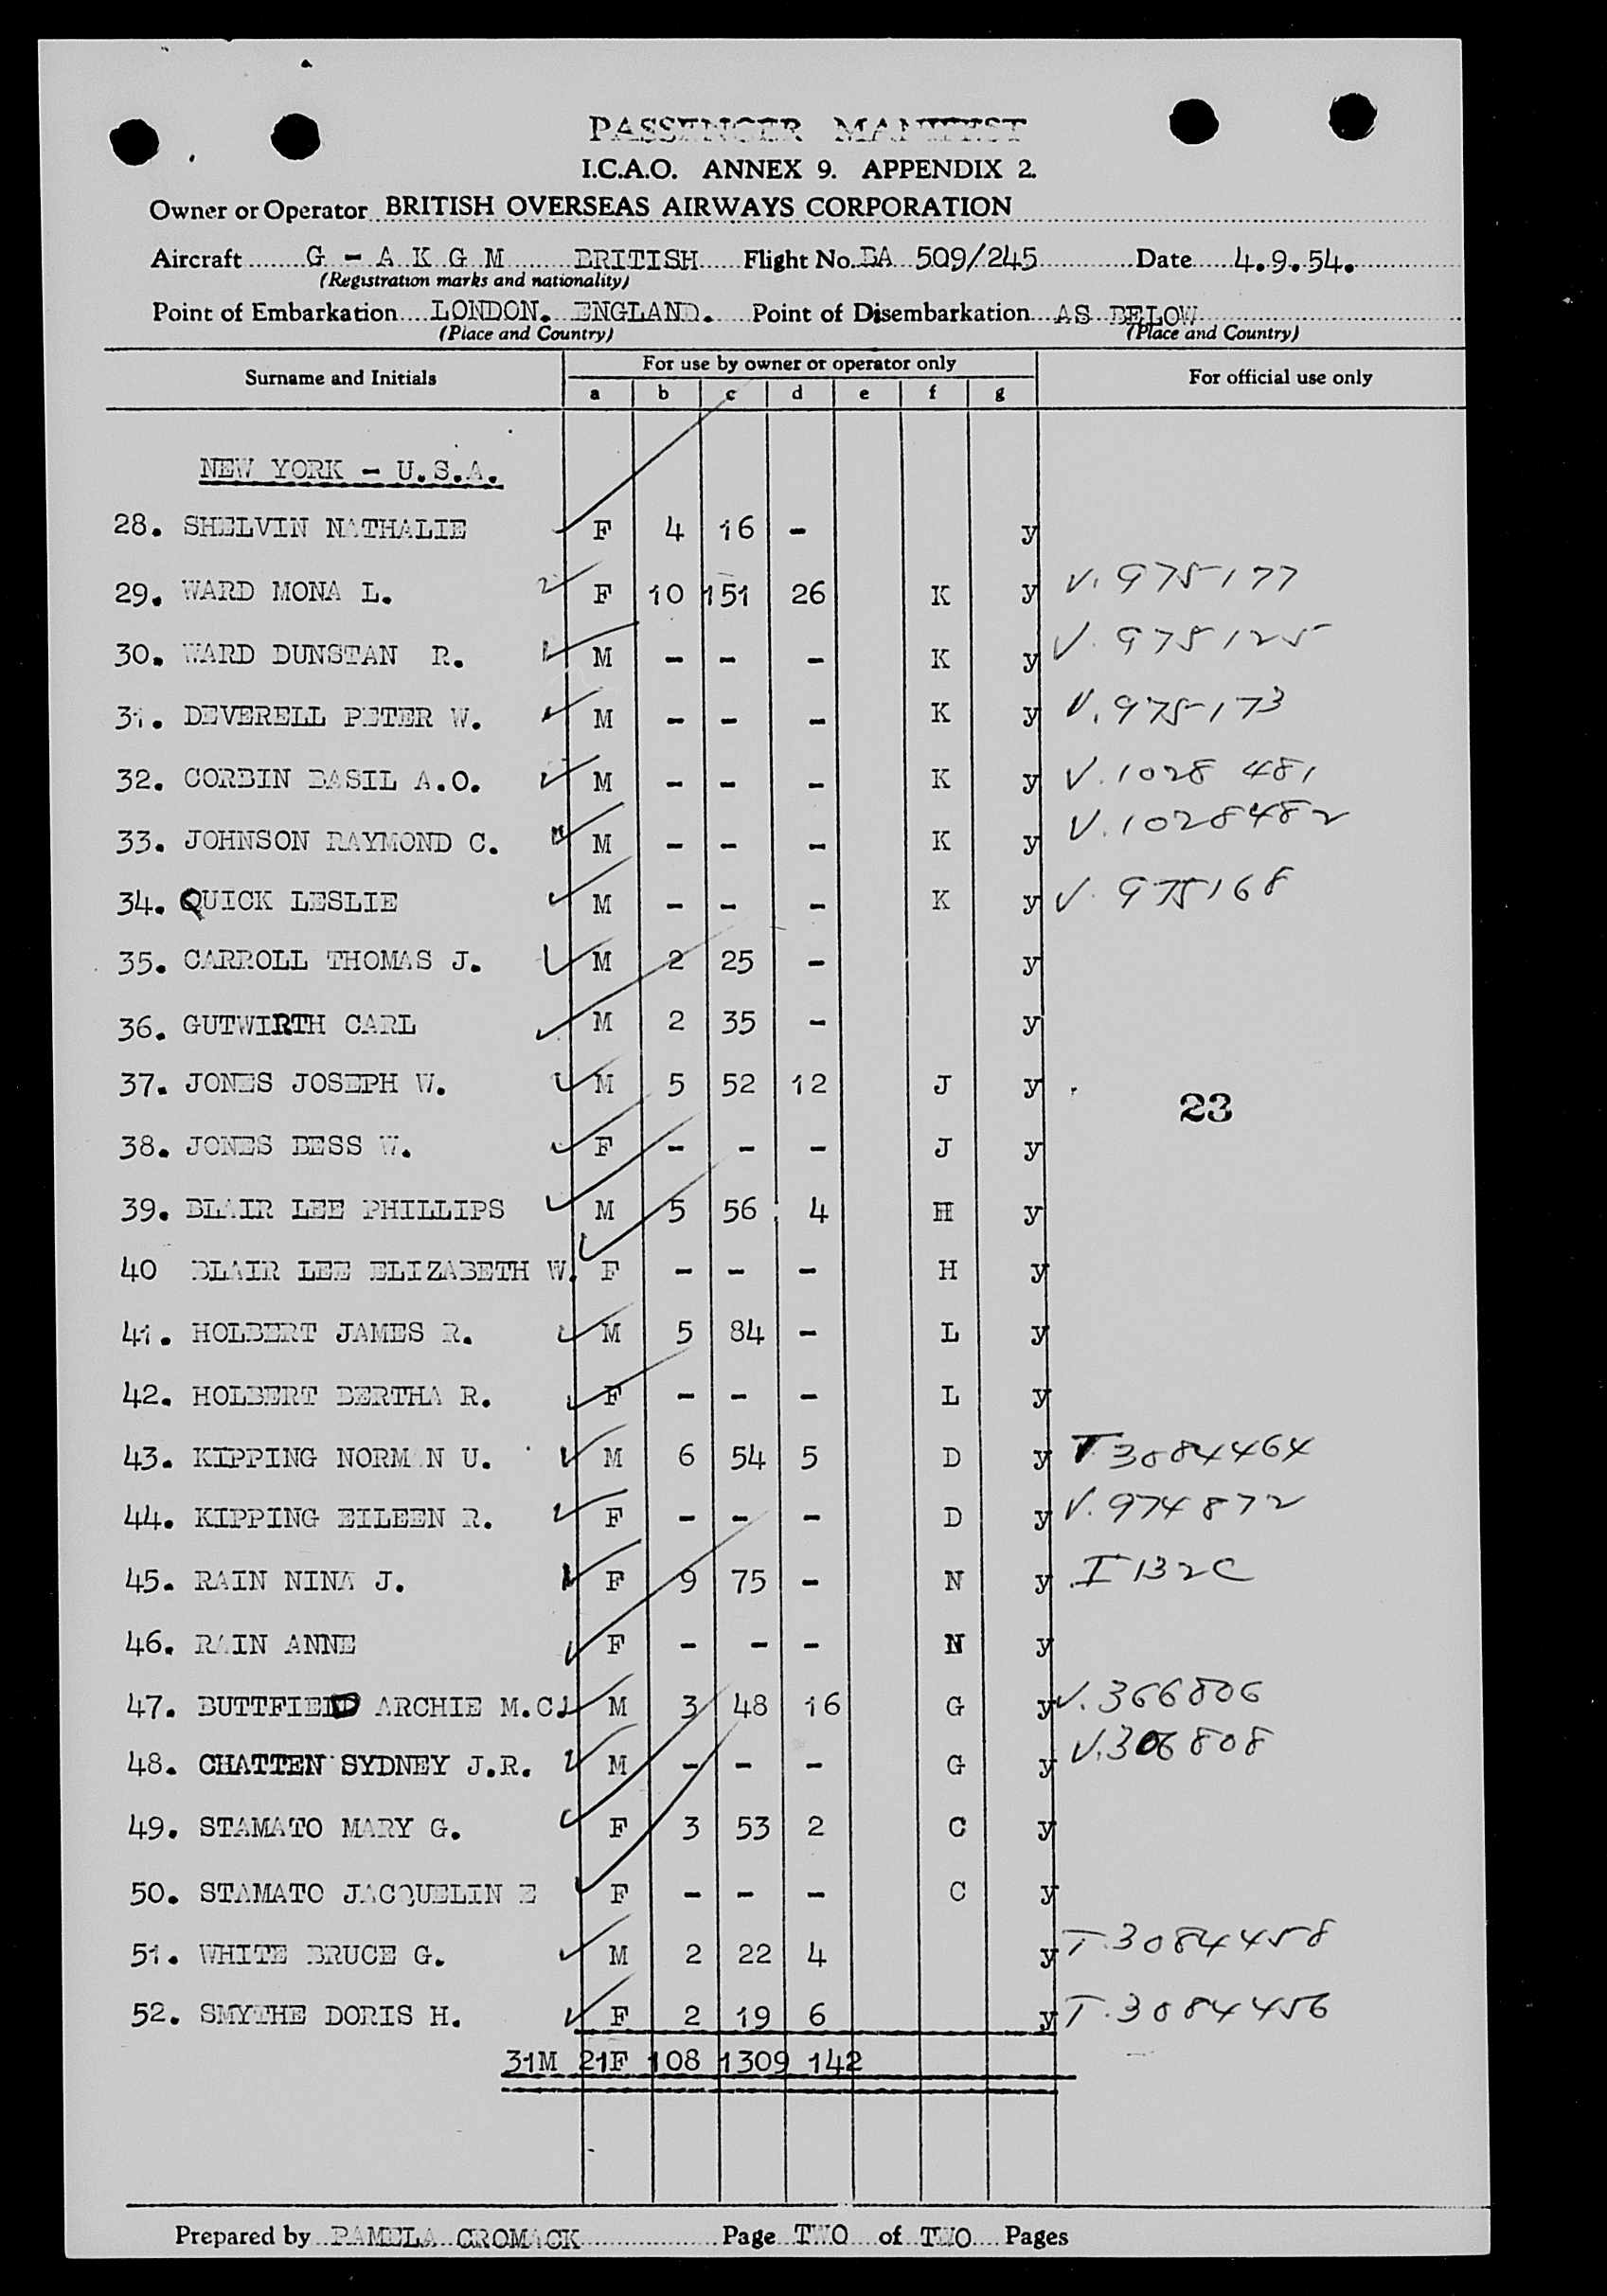 PASSENGER MANIFEST
I.C.A.O. ANNEX 9. APPENDIX 2.
Owner or Operator BRITISH OVERSEAS AIRWAYS CORPORATION
Aircraft G - A K G M BRITISH Flight No. BA 509/245 Date 4.9.54.
(Registration marks and nationality)
Point of Embarkation LONDON. ENGLAND. Point of Disembarkation AS BELOW
(Place and Country) (Place and Country)
Surname and Initials For use by owner or operator only For official use only
a b c d e f g
NEW YORK - U.S.A.
28. SHELVIN NATHALIE F 4 16 - y
29. WARD MONA L. F 10 151 26 K y V. 975177
30. WARD DUNSTAN R. M - - - K y V. 975125
31. DEVERELL PETER W. M - - - K y V. 975173
32. CORBIN BASIL A.O. M - - - K y V. 1028 481
33. JOHNSON RAYMOND C. M - - - K y V. 1028482
34. QUICK LESLIE M - - - K y V. 975168
35. CARROLL THOMAS J. M 2 25 - y
36. GUTWIRTH CARL M 2 35 - y
37. JONES JOSEPH W. M 5 52 12 J y
23
38. JONES BESS W. F - - - J y
39. BLAIR LEE PHILLIPS M 5 56 4 H y
40 BLAIR LEE ELIZABETH W. F - - - H y
41. HOLBERT JAMES R. M 5 84 - L y
42. HOLBERT BERTHA R. F - - - L y
43. KIPPING NORM N U. M 6 54 5 D y T 3084464
44. KIPPING EILEEN R. F - - - D y V. 974872
45. RAIN NINA J. F 9 75 - N y I 132C
46. RAIN ANNE F - - - N y
47. BUTTFIELD ARCHIE M.C. M 3 48 16 G y V. 366806
48. CHATTEN SYDNEY J.R. M - - - G y V. 306808
49. STAMATO MARY G. F 3 53 2 C y
50. STAMATO JACQUELIN E F - - - C y
51. WHITE BRUCE G. M 2 22 4 y T. 3084458
52. SMYTHE DORIS H. F 2 19 6 y T. 3084456
31M 21F 108 1309 142
Prepared by PAMELA CROMACK Page TWO of TWO Pages